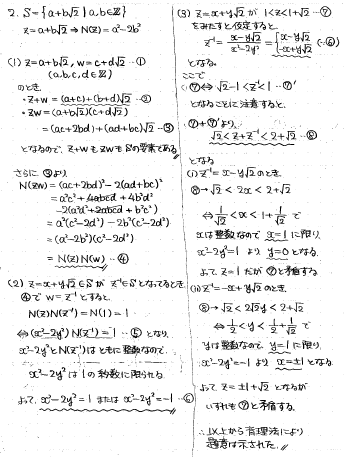 2. S = {a+b√2 | a,b∈Z}
z=a+b√2 ⇒ N(z) = a²-2b²
(1) z=a+b√2, w=c+d√2 …①
(a,b,c,d∈Z)
のとき,
・z+w = (a+c)+(b+d)√2 …②
・zw = (a+b√2)(c+d√2)
= (ac+2bd)+(ad+bc)√2 …③
となるので, z+wもzwもSの要素である
さらに ③より
N(zw) = (ac+2bd)²-2(ad+bc)²
= a²c²+4abcd+4b²d²
-2(a²d²+2abcd+b²c²)
= a²(c²-2d²)-2b²(c²-2d²)
= (a²-2b²)(c²-2d²)
= N(z)N(w) …④
(2) z=x+y√2∈Sが z⁻¹∈Sとなってるとき
④で w=z⁻¹とすると
N(z)N(z⁻¹) = N(1) = 1
⇔ (x²-2y²)N(z⁻¹)=1 …⑤ となり,
x²-2y²とN(z⁻¹)はともに整数なので
x²-2y²は1の約数に限られる
よって x²-2y²=1 または x²-2y²=-1 …⑥
(3) z=x+y√2が 1<z<1+√2 …⑦
をみたすと仮定すると,
z⁻¹ = (x-y√2)/(x²-2y²) = {x-y√2 / -x+y√2 (∵⑥)
となる.
ここで
⑦⇔ √2-1<z⁻¹<1 …⑦'
となることに注意すると,
⑦+⑦'より,
√2<z+z⁻¹<2+√2 …⑧
となる
(i) z⁻¹=x-y√2のとき,
⑧→ √2<2x<2+√2
⇔ 1/√2<x<1+1/√2 で
xは整数なので x=1に限り,
x²-2y²=1 より y=0となる.
よって z=1だが⑦と矛盾する
(ii) z⁻¹=-x+y√2のとき,
⑧→ √2<2√2y<2+√2
⇔ 1/2<y<1/2+1/√2 で
yは整数なので y=1に限り,
x²-2y²=-1より x=±1となる
よって z=±1+√2 となるが
いずれも⑦と矛盾する.
∴以上から背理法により
題意は示された.